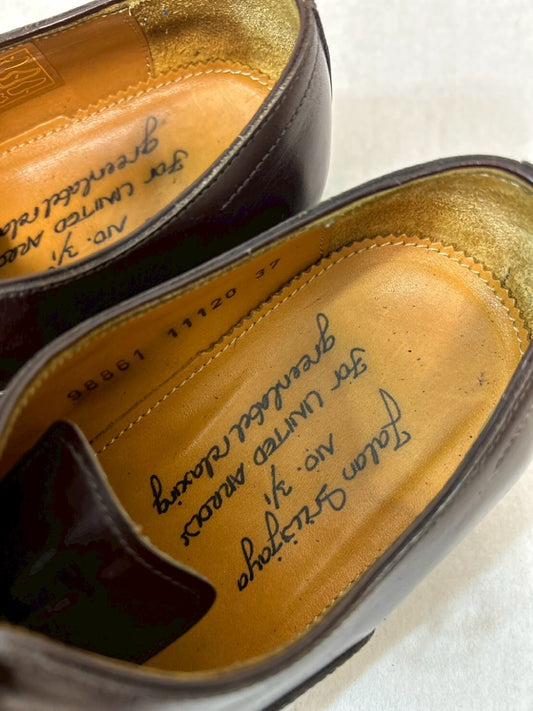 For UNITED ARROWS
greenlabel rela
NO. 3/1
98861 11120 37
Jalan Sriwijaya
NO. 3/1
For UNITED ARROWS
greenlabel relaxing